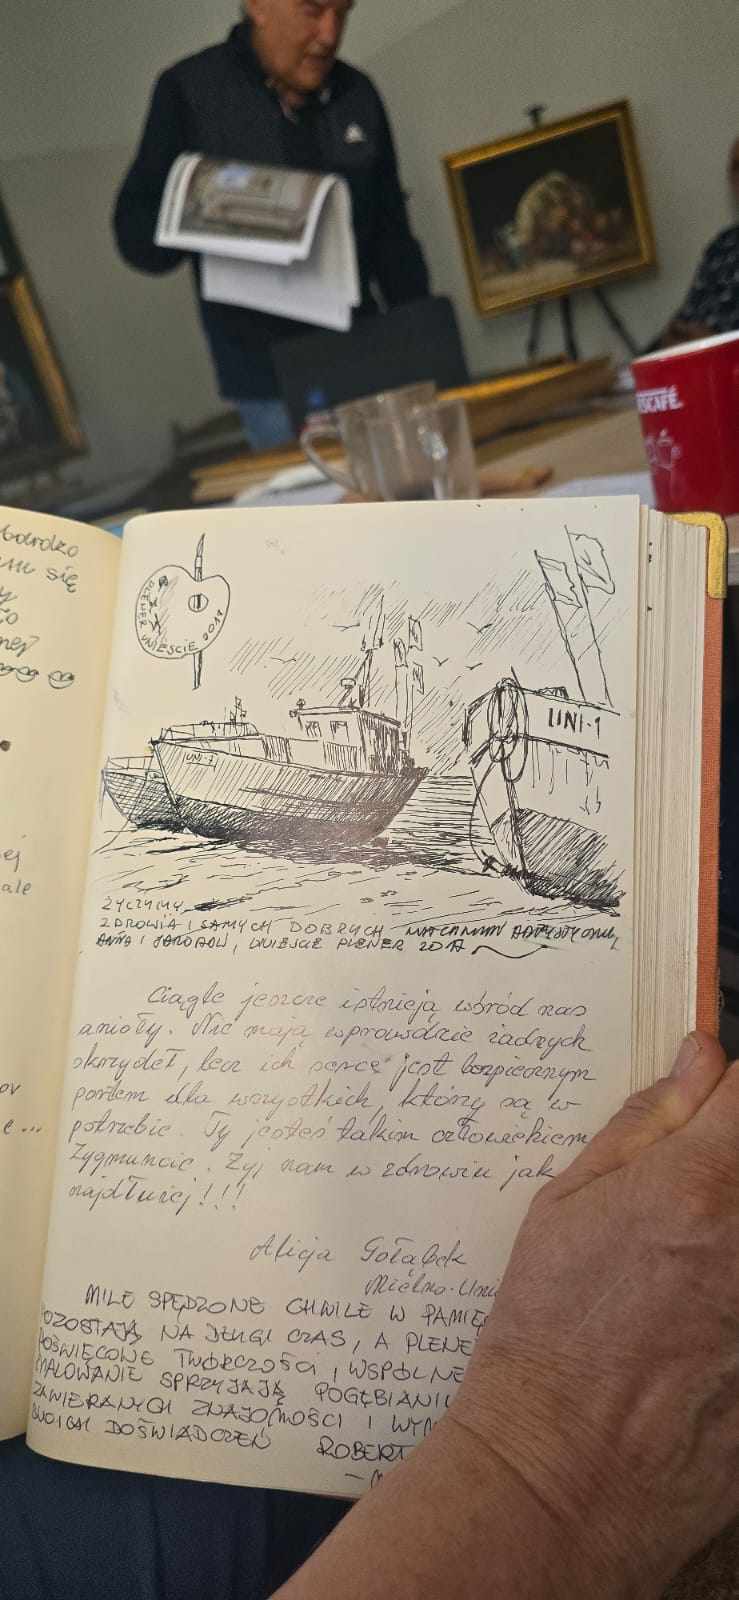 ESCAFÉ.
bardzo
się
ej
ale
PLENER UNIEŚCIE 2017
UNI-1
UNI-1
ŻYCZYMY
ZDROWIA I SAMYCH DOBRYCH
ANNA I JAROSŁAW, UNIEŚCIE PLENER 2017
Ciągle jeszcze istnieją wśród nas
anioły. Nie mają wprawdzie żadnych
skrzydeł, lecz ich serce jest bezpiecznym
portem dla wszystkich, którzy są w
potrzebie. Ty jesteś takim człowiekiem
Zygmuncie. Żyj nam w zdrowiu jak
najdłużej!!!
Alicja Gołąbek
Mielno-Uni
MILE SPĘDZONE CHWILE W PAMIĘ
POZOSTAJĄ NA DŁUGI CZAS, A PLENE
POŚWIĘCONE TWÓRCZOŚCI I WSPÓLNE
MALOWANIE SPRZYJAJĄ POGŁĘBIANIU
ZAWIERANYCH ZNAJOMOŚCI I WYM
SWOICH DOŚWIADCZEŃ ROBERT